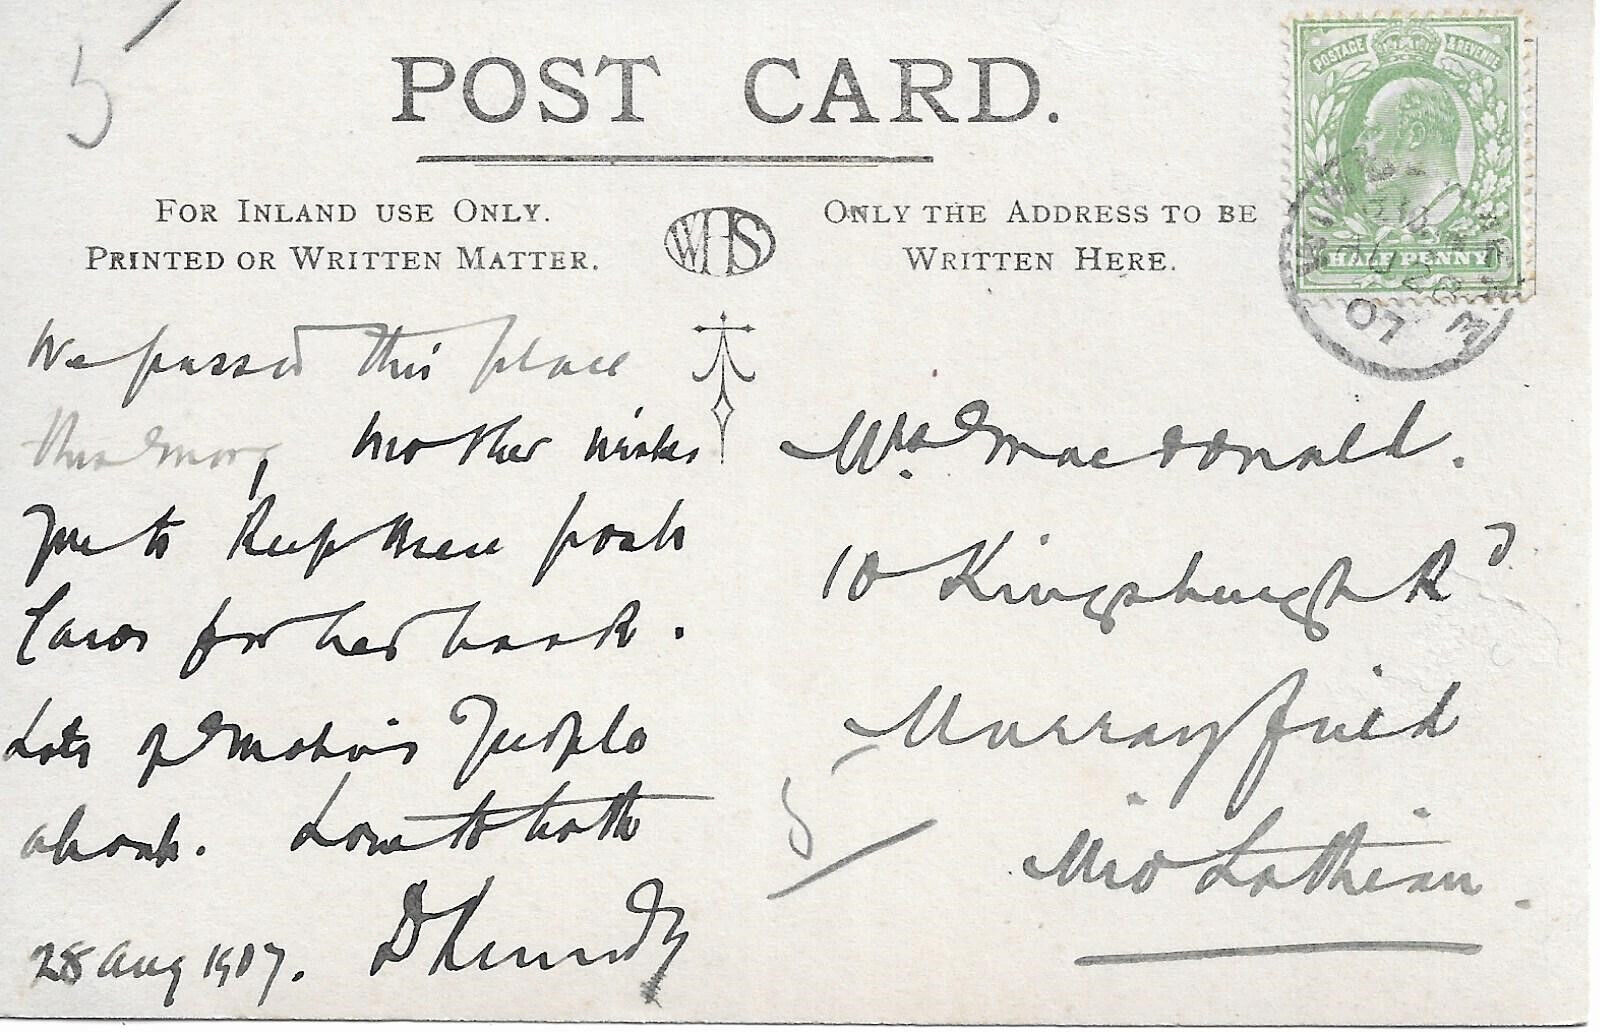 5
POST CARD.
POSTAGE & REVENUE
HALF PENNY
FOR INLAND USE ONLY.
PRINTED OR WRITTEN MATTER.
WHS
ONLY THE ADDRESS TO BE
WRITTEN HERE.
AU 28
07
We passed this place
this morng, Mother wishes
you to keep these post
Cards for her book.
Lots of motoring people
about. Love to both
28 Aug 1907.
Mrs Macdonald.
10 Kingsburgh Rd
Murrayfield
Mid Lothian.